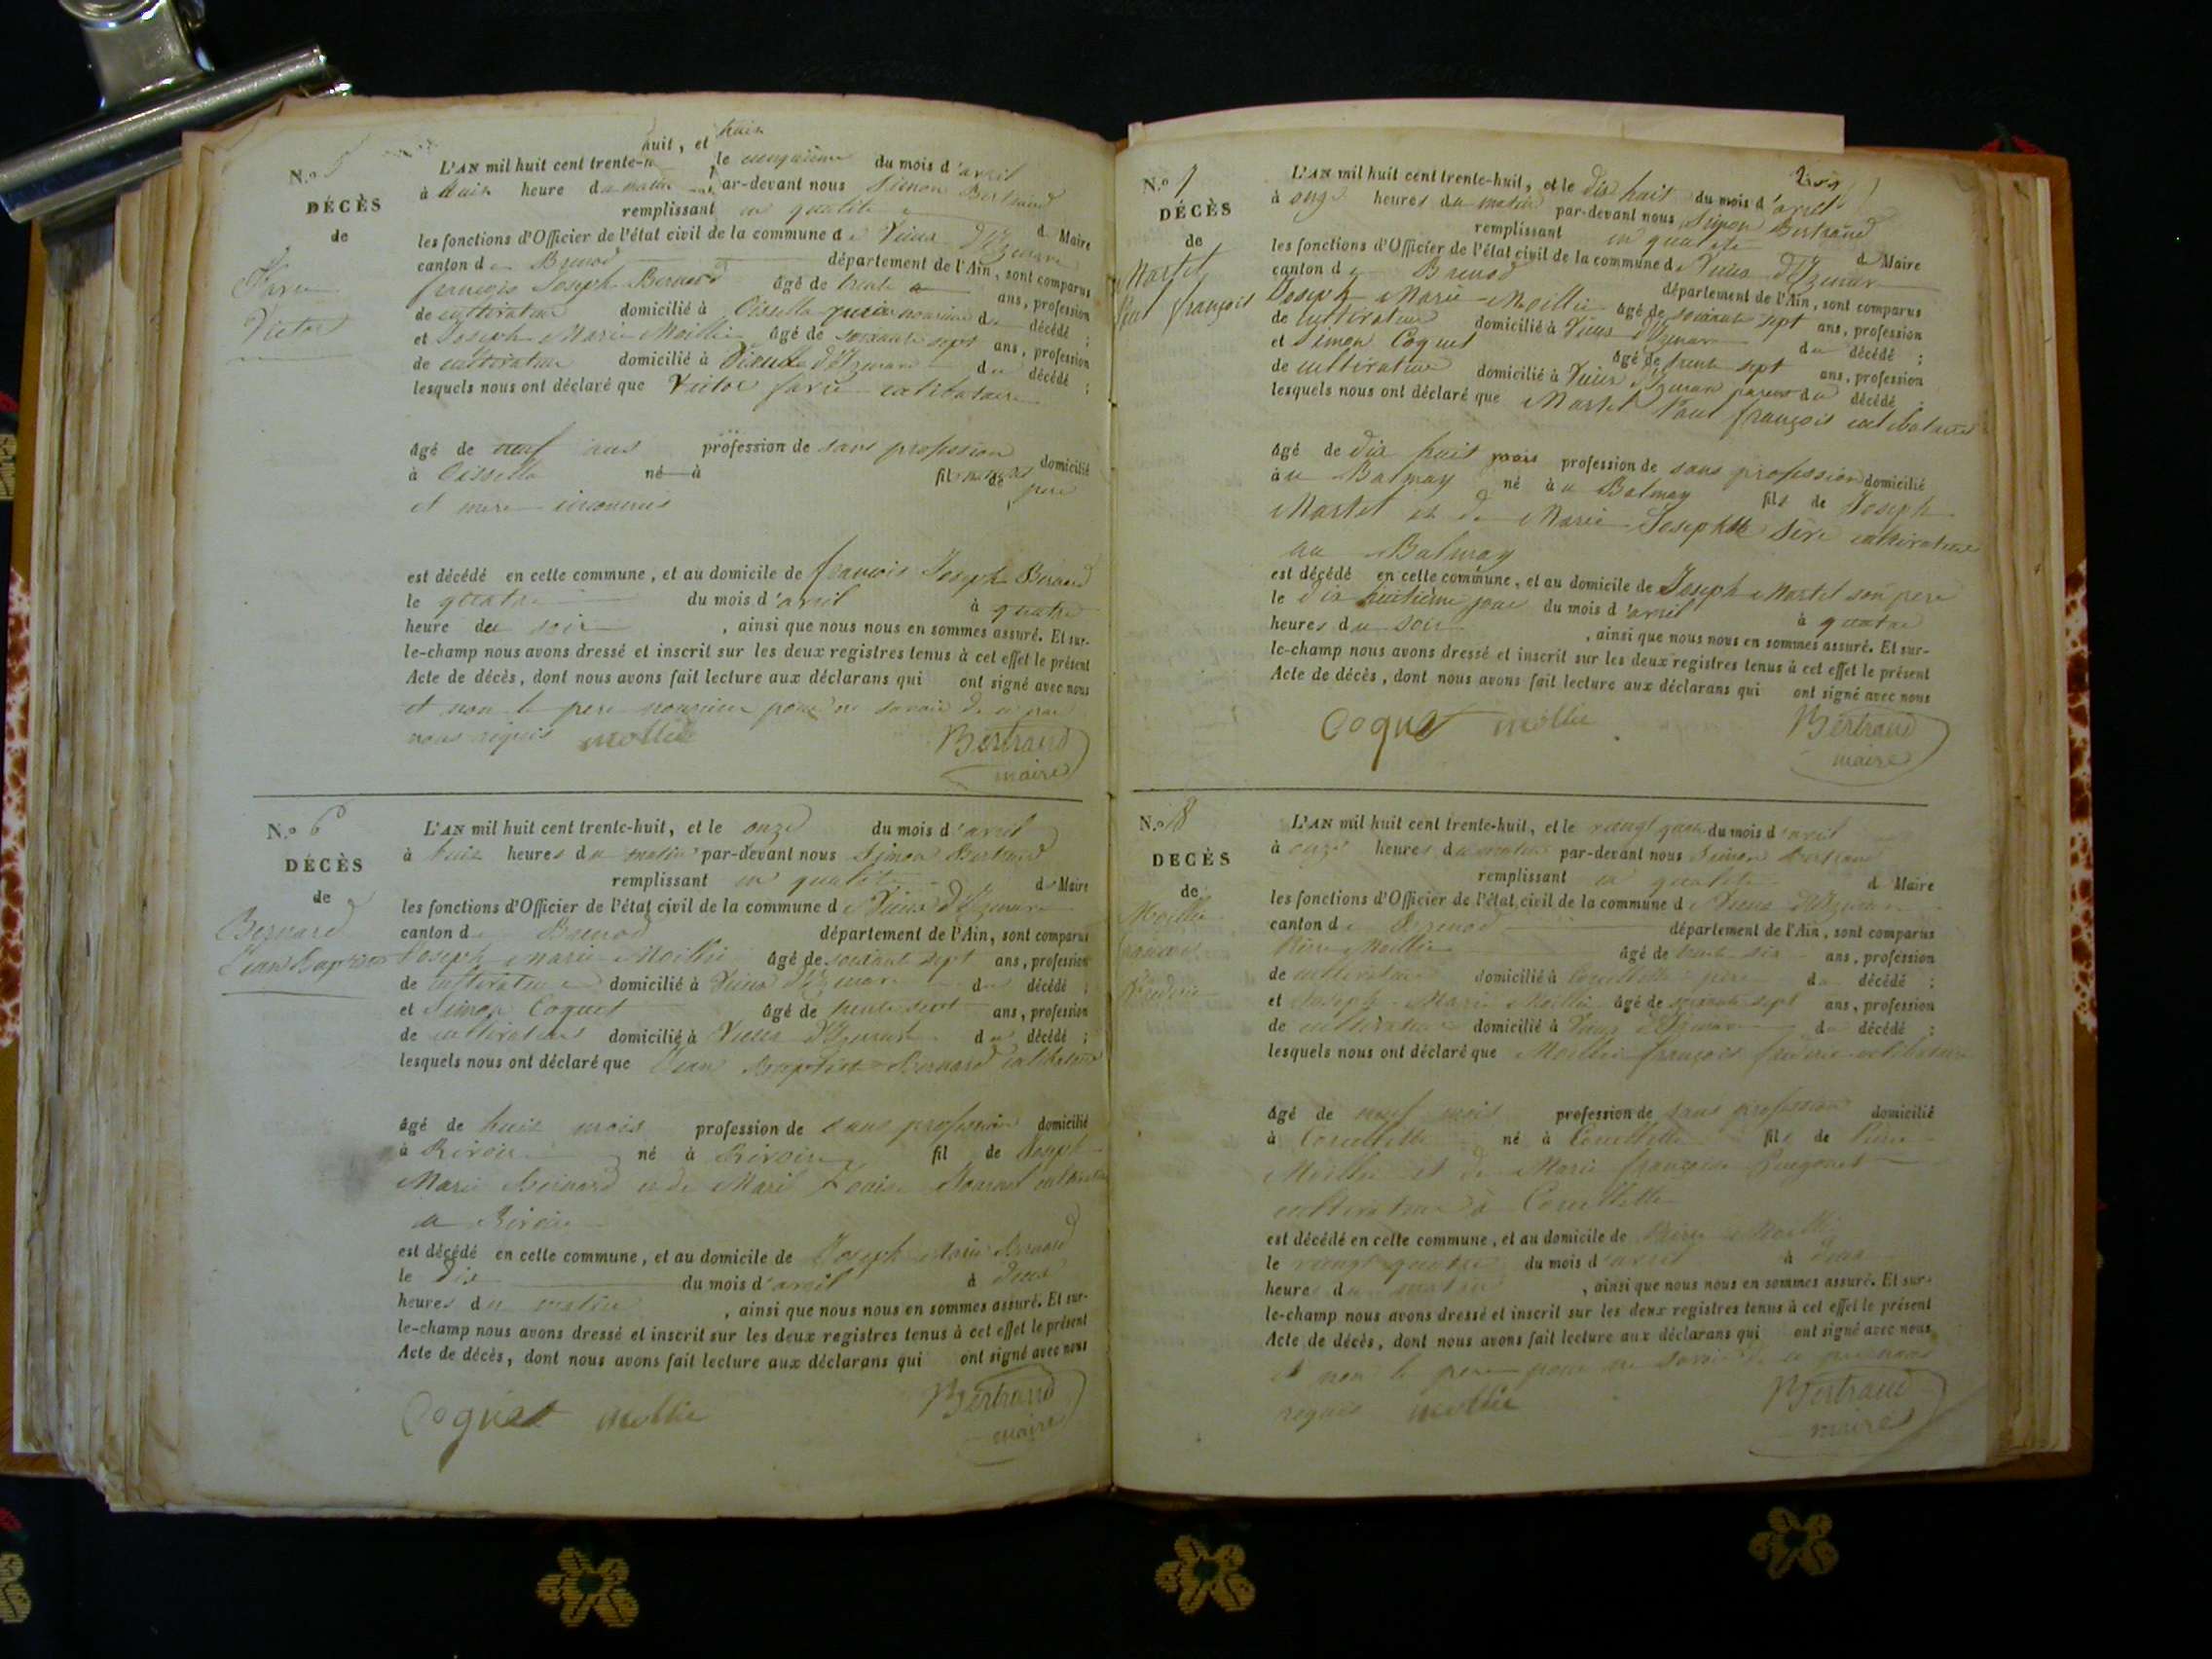 N.º 5
DÉCÈS
de
Favre
Victor
huit, et huit
L'AN mil huit cent trente- le cinquième du mois d'avril
à huit heure du matin par-devant nous Simon Bertrand
remplissant en qualité d Maire
les fonctions d'Officier de l'état civil de la commune de Vieux d'Izenave
canton de Brenod département de l'Ain, sont comparus
françois Joseph Bernard âgé de trente ans, profession
de cultivateur domicilié à Cisselle père nourricier du décédé ;
et Joseph Marie Moillie âgé de soixante sept ans, profession
de cultivateur domicilié à Vieux d'Izenave du décédé ;
lesquels nous ont déclaré que Victor favre celibataire
âgé de neuf ans profession de sans profession domicilié
à Cisselle né à fil de père
et mere inconnus
est décédé en cette commune, et au domicile de françois Joseph Bernard
le quatre du mois d'avril à quatre
heure du soir , ainsi que nous nous en sommes assuré. Et sur-
le-champ nous avons dressé et inscrit sur les deux registres tenus à cet effet le présent
Acte de décès, dont nous avons fait lecture aux déclarans qui ont signé avec nous
et non le pere nourricier pour ne savoir de ce par
nous requis mollie Bertrand
maire
N.º 6
DÉCÈS
de
Bernard
Jean Baptiste
L'AN mil huit cent trente-huit, et le onze du mois d'avril
à huit heures du matin par-devant nous Simon Bertrand
remplissant en qualité de Maire
les fonctions d'Officier de l'état civil de la commune d Vieux d'Izenave
canton de Brenod département de l'Ain, sont comparus
Joseph marie Moillie âgé de soixante sept ans, profession
de cultivateur domicilié à Vieux d'Izenave du décédé ;
et Simon Coquet âgé de trente sept ans, profession
de cultivateur domicilié à Vieux d'Izenave du décédé ;
lesquels nous ont déclaré que Jean Baptiste Bernard celibataire
âgé de huit mois profession de sans profession domicilié
à né à fil de Joseph
Marie Bernard et de Marie Louise cultivateur
a
est décédé en cette commune, et au domicile de Joseph Marie Bernard
le dix du mois d'avril à deux
heures du matin , ainsi que nous nous en sommes assuré. Et sur-
le-champ nous avons dressé et inscrit sur les deux registres tenus à cet effet le présent
Acte de décès, dont nous avons fait lecture aux déclarans qui ont signé avec nous
Coquet mollie Bertrand
maire
N.º 7
DÉCÈS
de
Martel
Paul françois
L'AN mil huit cent trente-huit, et le dix huit du mois d'avril
à onze heures du matin par-devant nous Simon Bertrand
remplissant en qualité d Maire
les fonctions d'Officier de l'état civil de la commune de Vieux d'Izenave
canton de Brenod département de l'Ain, sont comparus
Joseph Marie Moillie âgé de soixante sept ans, profession
de cultivateur domicilié à Vieux d'Izenave du décédé ;
et Simon Coquet âgé de trente sept ans, profession
de cultivateur domicilié à Vieux d'Izenave du décédé ;
lesquels nous ont déclaré que Martel Paul françois celibataire
âgé de dix huit mois profession de sans profession domicilié
au Balmay né au Balmay fils de Joseph
Martel et de Marie Josephte cultivateur
au Balmay
est décédé en cette commune, et au domicile de Joseph Martel son pere
le dix huitième jour du mois d'avril à quatre
heures du soir , ainsi que nous nous en sommes assuré. Et sur-
le-champ nous avons dressé et inscrit sur les deux registres tenus à cet effet le présent
Acte de décès, dont nous avons fait lecture aux déclarans qui ont signé avec nous
Coquet mollie Bertrand
maire
N.º 8
DÉCÈS
de
Moillie
françois
L'AN mil huit cent trente-huit, et le vingt quatre du mois d'avril
à onze heures du matin par-devant nous Simon Bertrand
remplissant en qualité d Maire
les fonctions d'Officier de l'état civil de la commune d Vieux d'Izenave
canton de Brenod département de l'Ain, sont comparus
Pierre Moillie âgé de trente six ans, profession
de cultivateur domicilié à père du décédé ;
et Joseph Marie Moillie âgé de soixante sept ans, profession
de cultivateur domicilié à Vieux d'Izenave du décédé ;
lesquels nous ont déclaré que Moillie françois celibataire
âgé de neuf mois profession de sans profession domicilié
à né à fils de Pierre
Moillie et de Marie françoise
cultivateur à
est décédé en cette commune, et au domicile de Pierre Moillie
le vingt quatre du mois d'avril à deux
heures du matin , ainsi que nous nous en sommes assuré. Et sur-
le-champ nous avons dressé et inscrit sur les deux registres tenus à cet effet le présent
Acte de décès, dont nous avons fait lecture aux déclarans qui ont signé avec nous
et non le pere pour ne savoir de ce par nous
requis mollie Bertrand
maire